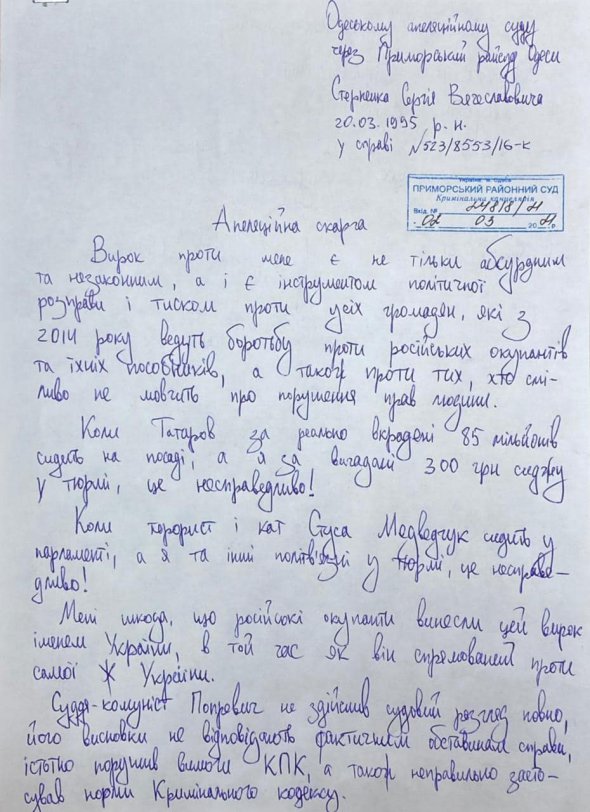 Одеському апеляційному суду
через Приморський райсуд Одеси
Стерненка Сергія Вячеславовича
20.03.1995 р.н.
у справі №523/8553/16-к
Україна м. Одеса
ПРИМОРСЬКИЙ РАЙОННИЙ СУД
Кримінальна канцелярія
Вхід. № 24818/21
02 03 2021 р.
Апеляційна скарга
Вирок проти мене є не тільки абсурдним
та незаконним, а і є інструментом політичної
розправи і тиском проти усіх громадян, які з
2014 року ведуть боротьбу проти російських окупантів
та їхніх пособників, а також проти тих, хто смі-
ливо не мовчить про порушення прав людини.
Коли Татаров за реально вкрадені 85 мільйонів
сидить на посаді, а я за вигадані 300 грн сиджу
у тюрмі, це несправедливо!
Коли терорист і кат Стуса Медведчук сидить у
парламенті, а я та інші політв'язні у тюрмі, це несправе-
дливо!
Мені шкода, що російські окупанти винесли цей вирок
іменем України, в той час як він спрямований проти
самої Ж України.
Суддя-комуніст Попревич не здійснив судовий розгляд повно,
його висновки не відповідають фактичним обставинам справи,
істотно порушив вимоги КПК, а також неправильно засто-
сував норми Кримінального кодексу.